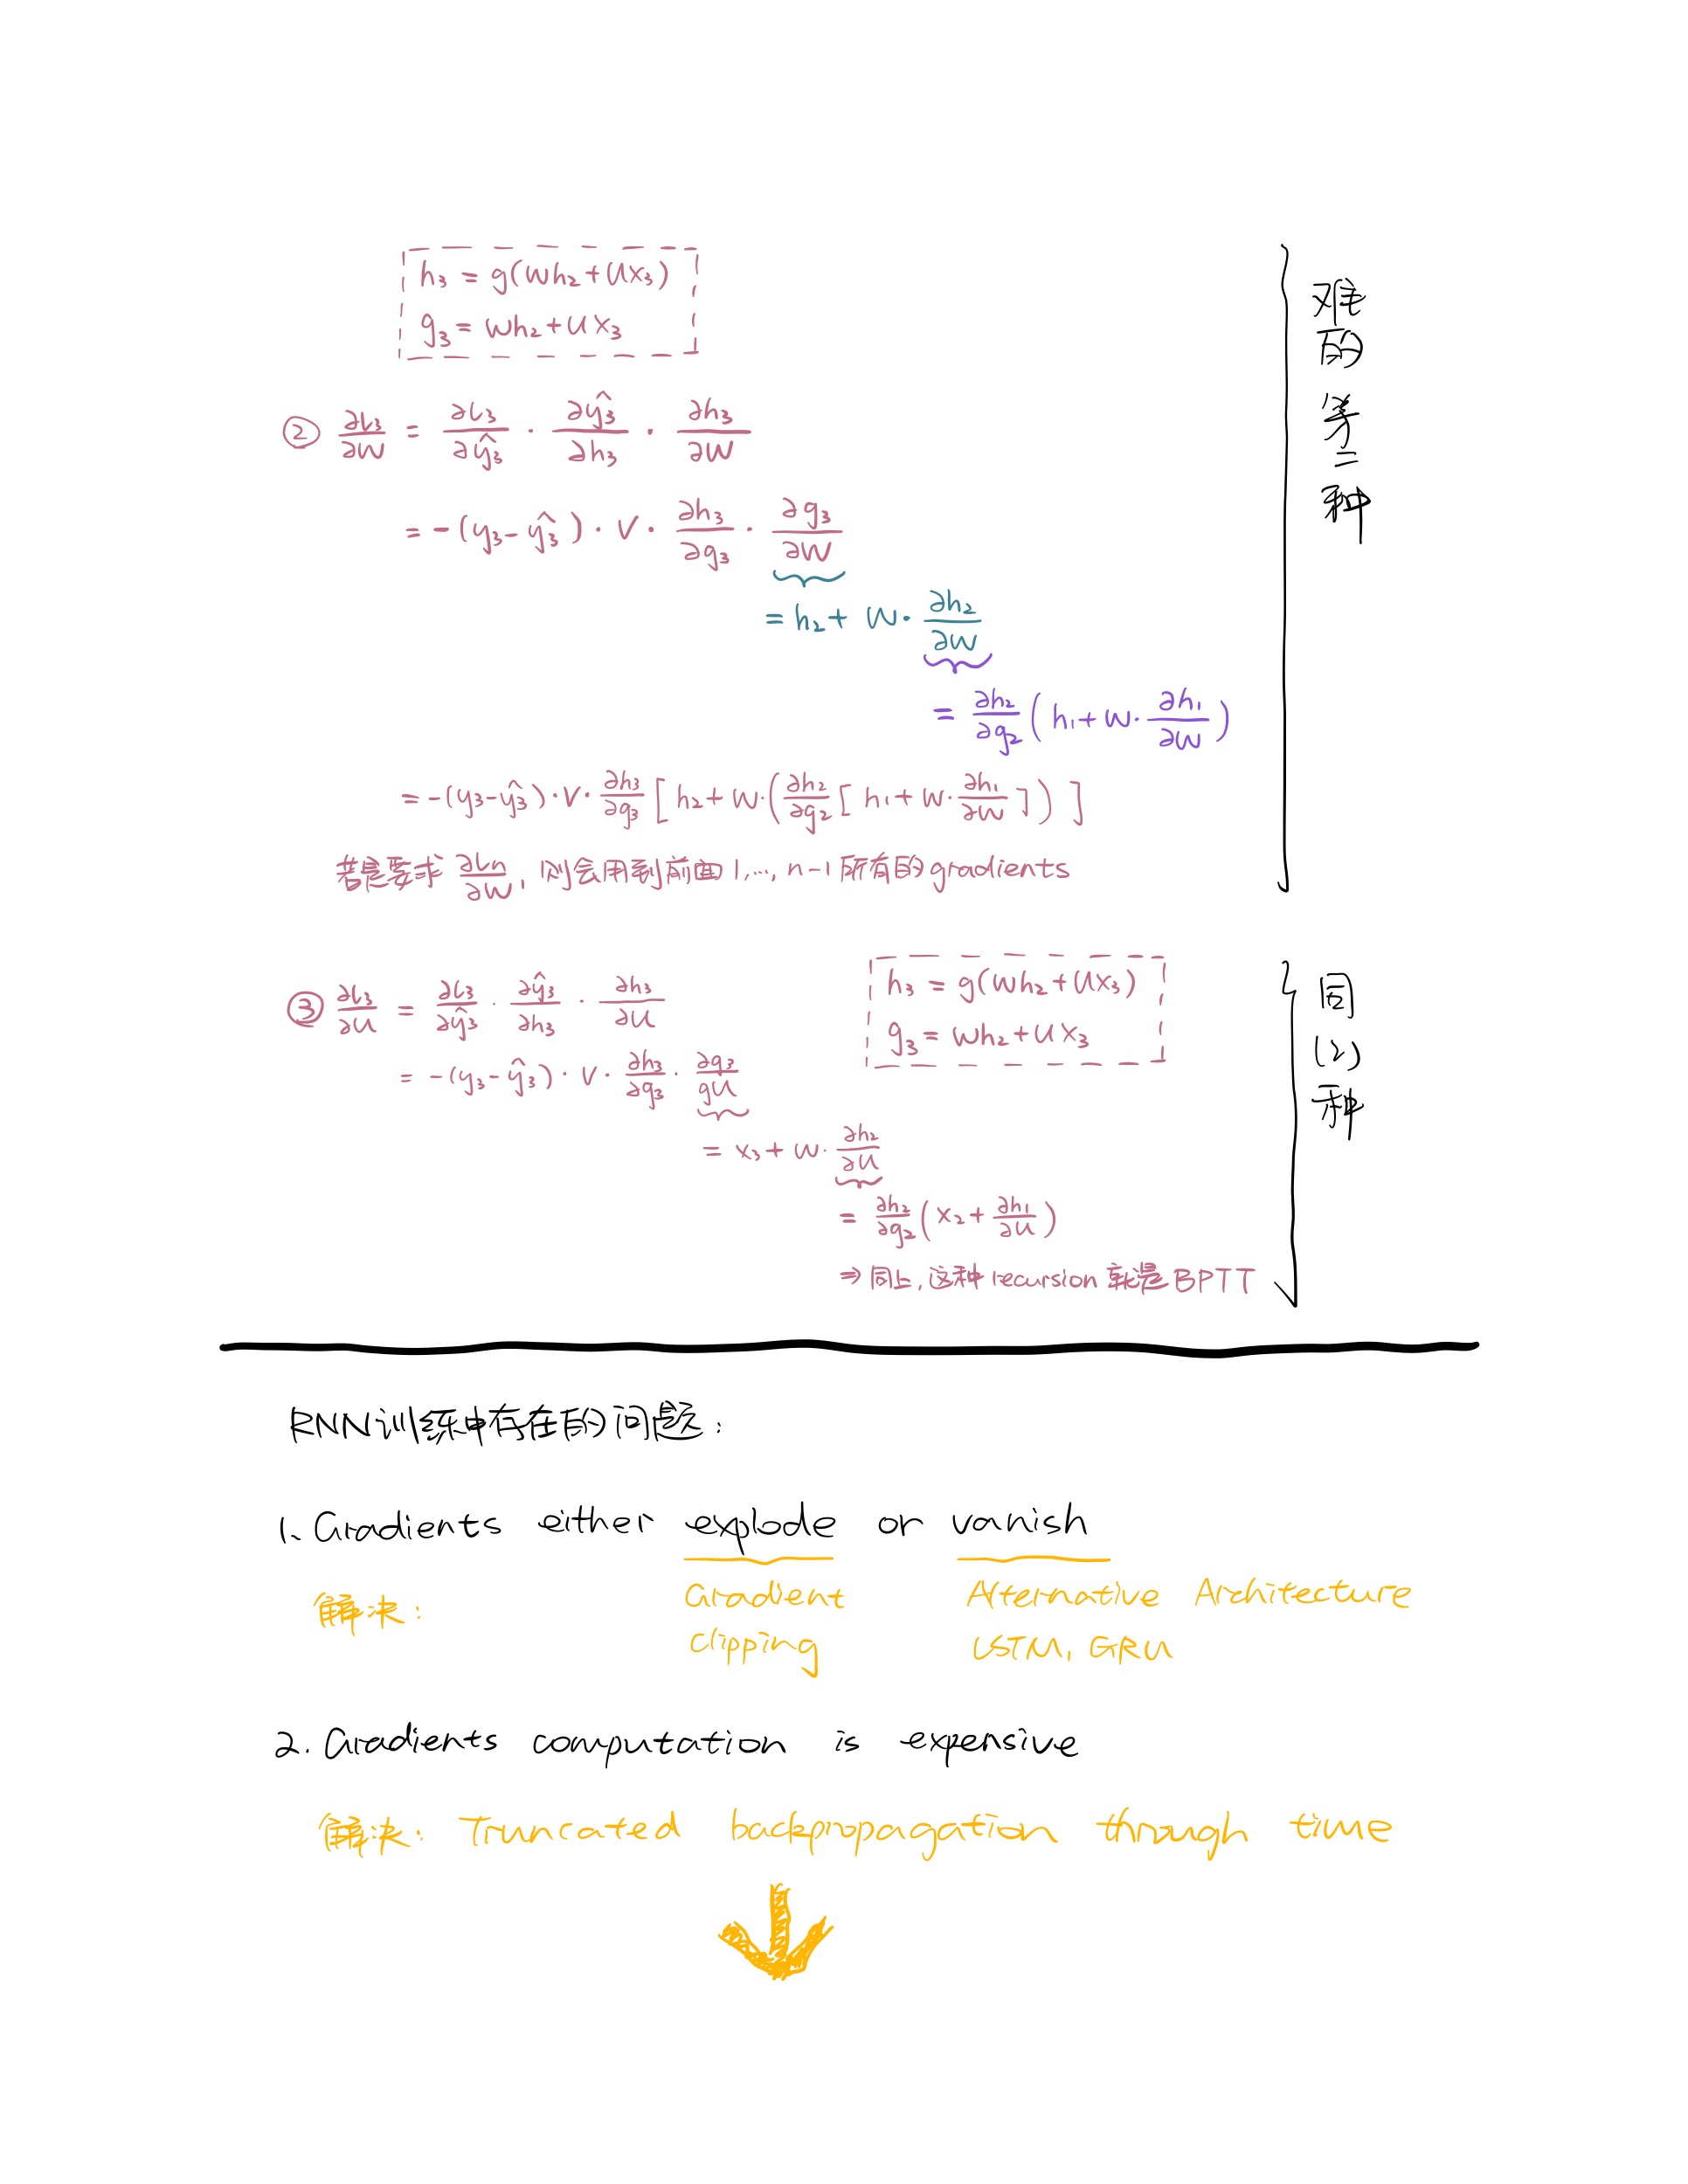 h₃ = g(Wh₂+Ux₃)
g₃ = Wh₂+Ux₃
难的第二种
② ∂L₃/∂W = ∂L₃/∂ŷ₃ · ∂ŷ₃/∂h₃ · ∂h₃/∂W
= -(y₃-ŷ₃) · V · ∂h₃/∂g₃ · ∂g₃/∂W
= h₂ + W · ∂h₂/∂W
= ∂h₂/∂g₂ (h₁ + W · ∂h₁/∂W)
= -(y₃-ŷ₃) · V · ∂h₃/∂g₃ [h₂ + W · (∂h₂/∂g₂ [h₁ + W · ∂h₁/∂W])]
若是要求 ∂Ln/∂W, 则会用到前面 1,…, n-1 所有的 gradients
h₃ = g(Wh₂+Ux₃)
g₃ = Wh₂+Ux₃
同(2)种
③ ∂L₃/∂U = ∂L₃/∂ŷ₃ · ∂ŷ₃/∂h₃ · ∂h₃/∂U
= -(y₃-ŷ₃) · V · ∂h₃/∂g₃ · ∂g₃/gU
= x₃ + W · ∂h₂/∂U
= ∂h₂/∂g₂ (x₂ + ∂h₁/∂U)
⇒ 同上, 这种 recursion 就是 BPTT
RNN训练中存在的问题:
1. Gradients either explode or vanish
解决: Gradient Alternative Architecture
Clipping LSTM, GRU
2. Gradients computation is expensive
解决: Truncated backpropagation through time